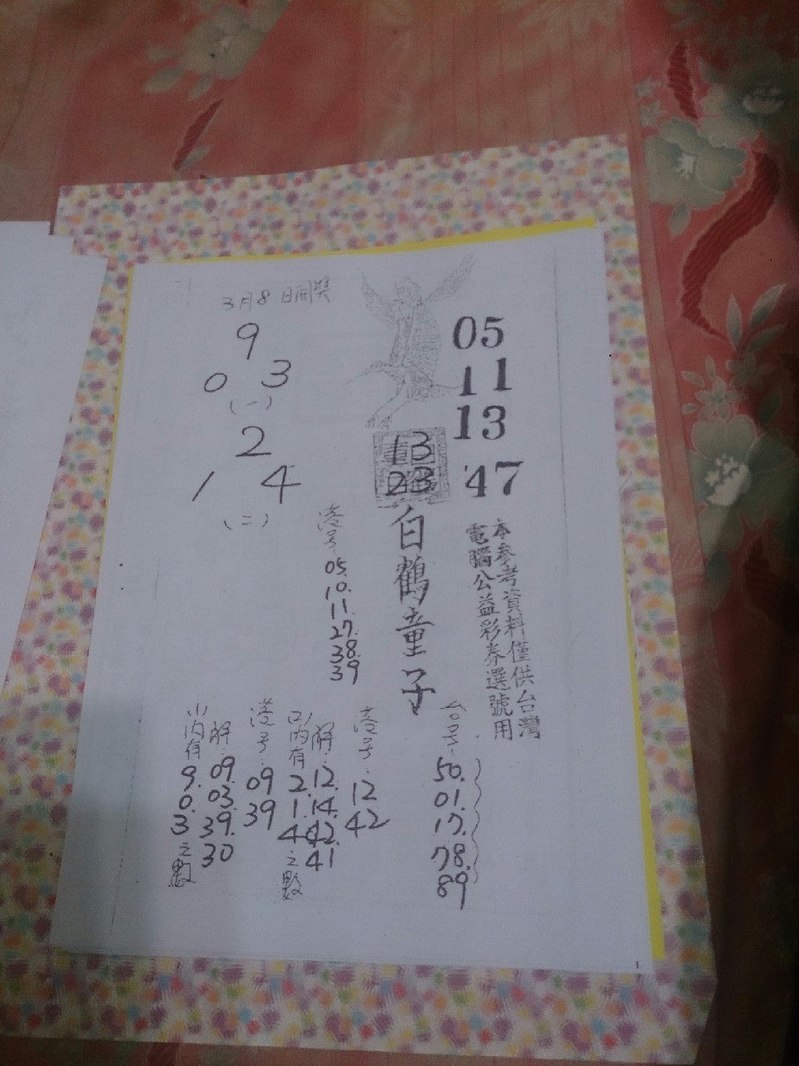 3月8日開獎
9
0 3
(一)
2
1 4
(二)
05
11
13
47
13
23
白鶴童子
本參考資料僅供台灣
電腦公益彩券選號用
港号:
05.
10.
11.
27.
38.
39
台号:
50.
01.
17.
78.
89
港号:
12
42
解:
12.
14.
42.
41
内有
2.
1.
4
之數
港号:
09
39
解
09.
03.
39.
30
内有
9.
0.
3
之數